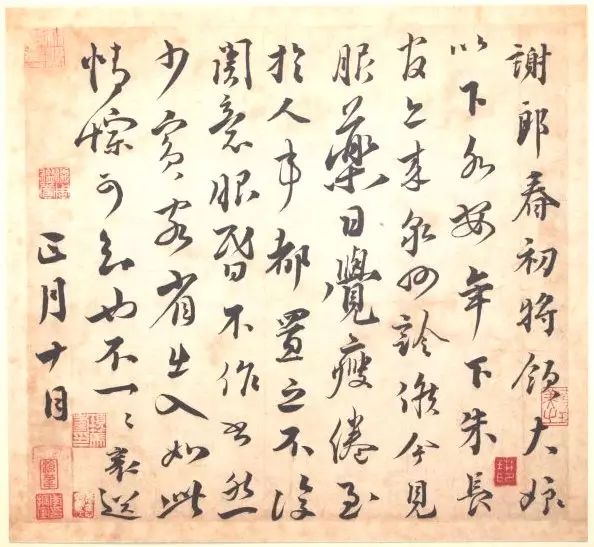 謝郎春初將領大娘
以下各安年下朱長
官亦來泉州診候今見
服藥日覺瘦倦至
於人事都置之不復
關意眼昏不作書然
少賓客省出入如此
情悰可知也不一一襄送
正月十日